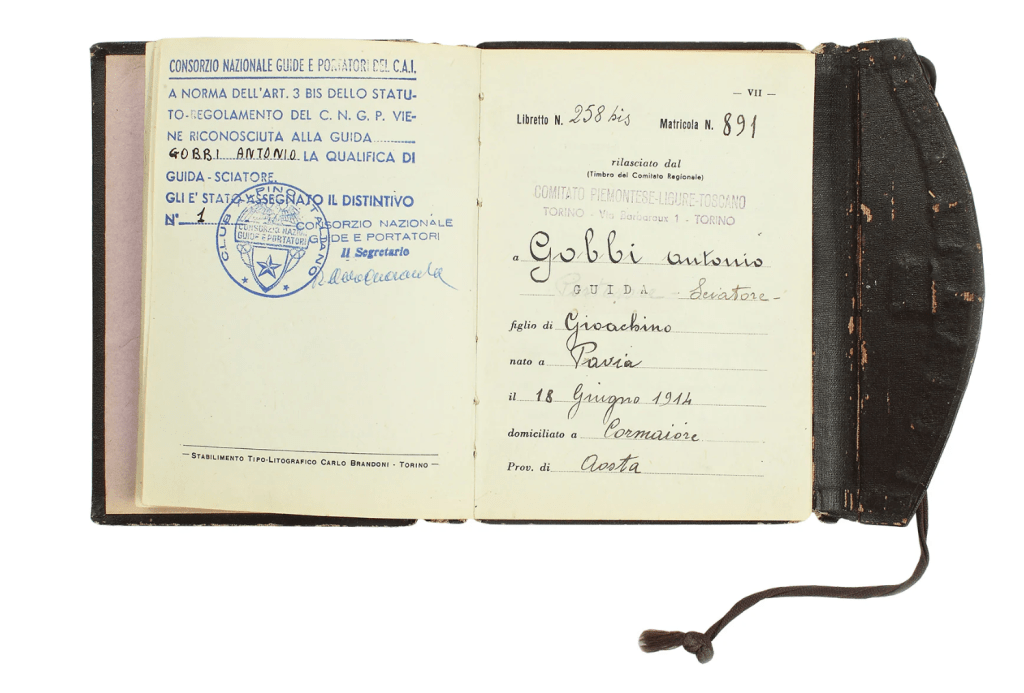 CONSORZIO NAZIONALE GUIDE E PORTATORI DEL C.A.I.
A NORMA DELL'ART. 3 BIS DELLO STATU-
TO-REGOLAMENTO DEL C. N. G. P. VIE-
NE RICONOSCIUTA ALLA GUIDA
GOBBI ANTONIO LA QUALIFICA DI
GUIDA-SCIATORE.
GLI E' STATO ASSEGNATO IL DISTINTIVO
N° 1
CLUB ALPINO ITALIANO
CONSORZIO NAZ.
GUIDE E PORTATORI
CONSORZIO NAZIONALE
GUIDE E PORTATORI
Il Segretario
— STABILIMENTO TIPO-LITOGRAFICO CARLO BRANDONI - TORINO —
— VII —
Libretto N. 258 bis Matricola N. 891
rilasciato dal
(Timbro del Comitato Regionale)
COMITATO PIEMONTESE-LIGURE-TOSCANO
TORINO - Via Barbaroux 1 - TORINO
a Gobbi Antonio
GUIDA - Sciatore -
figlio di Gioachino
nato a Pavia
il 18 Giugno 1914
domiciliato a Cormaiore
Prov. di Aosta